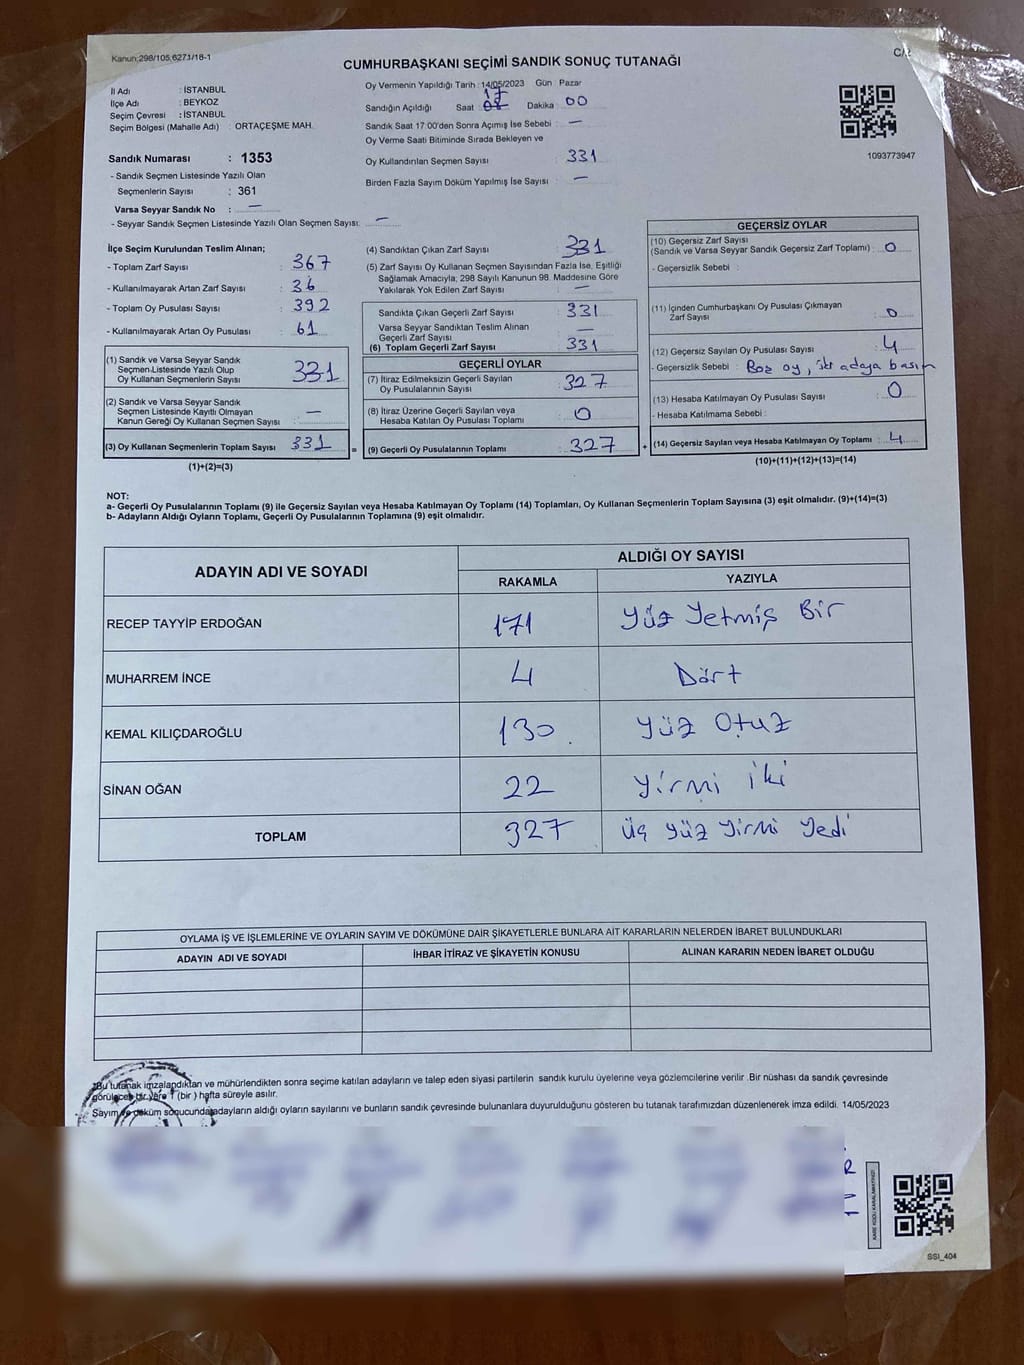 Kanun;298/105;6271/18-1
CUMHURBAŞKANI SEÇİMİ SANDIK SONUÇ TUTANAĞI
İl Adı : İSTANBUL
İlçe Adı : BEYKOZ
Seçim Çevresi : İSTANBUL
Seçim Bölgesi (Mahalle Adı) : ORTAÇEŞME MAH.
Sandık Numarası : 1353
- Sandık Seçmen Listesinde Yazılı Olan
Seçmenlerin Sayısı : 361
Varsa Seyyar Sandık No : —
- Seyyar Sandık Seçmen Listesinde Yazılı Olan Seçmen Sayısı: —
Oy Vermenin Yapıldığı Tarih : 14/05/2023 Gün : Pazar
Sandığın Açıldığı Saat : 17 Dakika : 00
Sandık Saat 17:00'den Sonra Açımış İse Sebebi : —
Oy Verme Saati Bitiminde Sırada Bekleyen ve
Oy Kullandırılan Seçmen Sayısı : 331
Birden Fazla Sayım Döküm Yapılmış İse Sayısı : —
1093773947
İlçe Seçim Kurulundan Teslim Alınan;
- Toplam Zarf Sayısı : 367
- Kullanılmayarak Artan Zarf Sayısı : 36
- Toplam Oy Pusulası Sayısı : 392
- Kullanılmayarak Artan Oy Pusulası : 61
(1) Sandık ve Varsa Seyyar Sandık
Seçmen Listesinde Yazılı Olup
Oy Kullanan Seçmenlerin Sayısı : 331
(2) Sandık ve Varsa Seyyar Sandık
Seçmen Listesinde Kayıtlı Olmayan
Kanun Gereği Oy Kullanan Seçmen Sayısı : —
(3) Oy Kullanan Seçmenlerin Toplam Sayısı : 331
(1)+(2)=(3)
(4) Sandıktan Çıkan Zarf Sayısı : 331
(5) Zarf Sayısı Oy Kullanan Seçmen Sayısından Fazla İse, Eşitliği
Sağlamak Amacıyla; 298 Sayılı Kanunun 98. Maddesine Göre
Yakılarak Yok Edilen Zarf Sayısı : —
Sandıkta Çıkan Geçerli Zarf Sayısı : 331
Varsa Seyyar Sandıktan Teslim Alınan
Geçerli Zarf Sayısı : —
(6) Toplam Geçerli Zarf Sayısı : 331
GEÇERLİ OYLAR
(7) İtiraz Edilmeksizin Geçerli Sayılan
Oy Pusulalarının Sayısı : 327
(8) İtiraz Üzerine Geçerli Sayılan veya
Hesaba Katılan Oy Pusulası Toplamı : 0
= (9) Geçerli Oy Pusulalarının Toplamı : 327 +
GEÇERSİZ OYLAR
(10) Geçersiz Zarf Sayısı
(Sandık ve Varsa Seyyar Sandık Geçersiz Zarf Toplamı) : 0
- Geçersizlik Sebebi :
(11) İçinden Cumhurbaşkanı Oy Pusulası Çıkmayan
Zarf Sayısı : 0
(12) Geçersiz Sayılan Oy Pusulası Sayısı : 4
- Geçersizlik Sebebi : Boz oy, iki adaya basım
(13) Hesaba Katılmayan Oy Pusulası Sayısı : 0
- Hesaba Katılmama Sebebi :
(14) Geçersiz Sayılan veya Hesaba Katılmayan Oy Toplamı : 4
(10)+(11)+(12)+(13)=(14)
NOT:
a- Geçerli Oy Pusulalarının Toplamı (9) ile Geçersiz Sayılan veya Hesaba Katılmayan Oy Toplamı (14) Toplamları, Oy Kullanan Seçmenlerin Toplam Sayısına (3) eşit olmalıdır. (9)+(14)=(3)
b- Adayların Aldığı Oyların Toplamı, Geçerli Oy Pusulalarının Toplamına (9) eşit olmalıdır.
ADAYIN ADI VE SOYADI ALDIĞI OY SAYISI
RAKAMLA YAZIYLA
RECEP TAYYİP ERDOĞAN 171 Yüz Yetmiş Bir
MUHARREM İNCE 4 Dört
KEMAL KILIÇDAROĞLU 130 Yüz Otuz
SİNAN OĞAN 22 Yirmi İki
TOPLAM 327 üç yüz yirmi yedi
OYLAMA İŞ VE İŞLEMLERİNE VE OYLARIN SAYIM VE DÖKÜMÜNE DAİR ŞİKAYETLERLE BUNLARA AİT KARARLARIN NELERDEN İBARET BULUNDUKLARI
ADAYIN ADI VE SOYADI İHBAR İTİRAZ VE ŞİKAYETİN KONUSU ALINAN KARARIN NEDEN İBARET OLDUĞU
Bu tutanak imzalandıktan ve mühürlendikten sonra seçime katılan adayların ve talep eden siyasi partilerin sandık kurulu üyelerine veya gözlemcilerine verilir .Bir nüshası da sandık çevresinde
görülecek bir yere 1 (bir ) hafta süreyle asılır.
Sayım ve döküm sonucunda adayların aldığı oyların sayılarını ve bunların sandık çevresinde bulunanlara duyurulduğunu gösteren bu tutanak tarafımızdan düzenlenerek imza edildi. 14/05/2023
KARE KODU KARALAMAYINIZ!
SSI_404